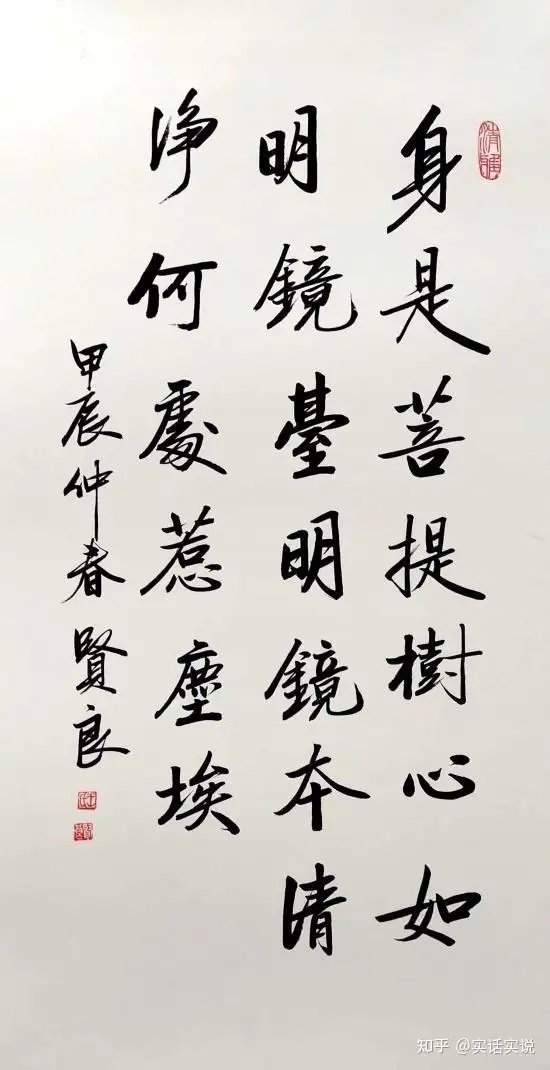 身是菩提樹心如
明鏡臺明鏡本清
淨何處惹塵埃
甲辰仲春賢良
知乎 @实话实说